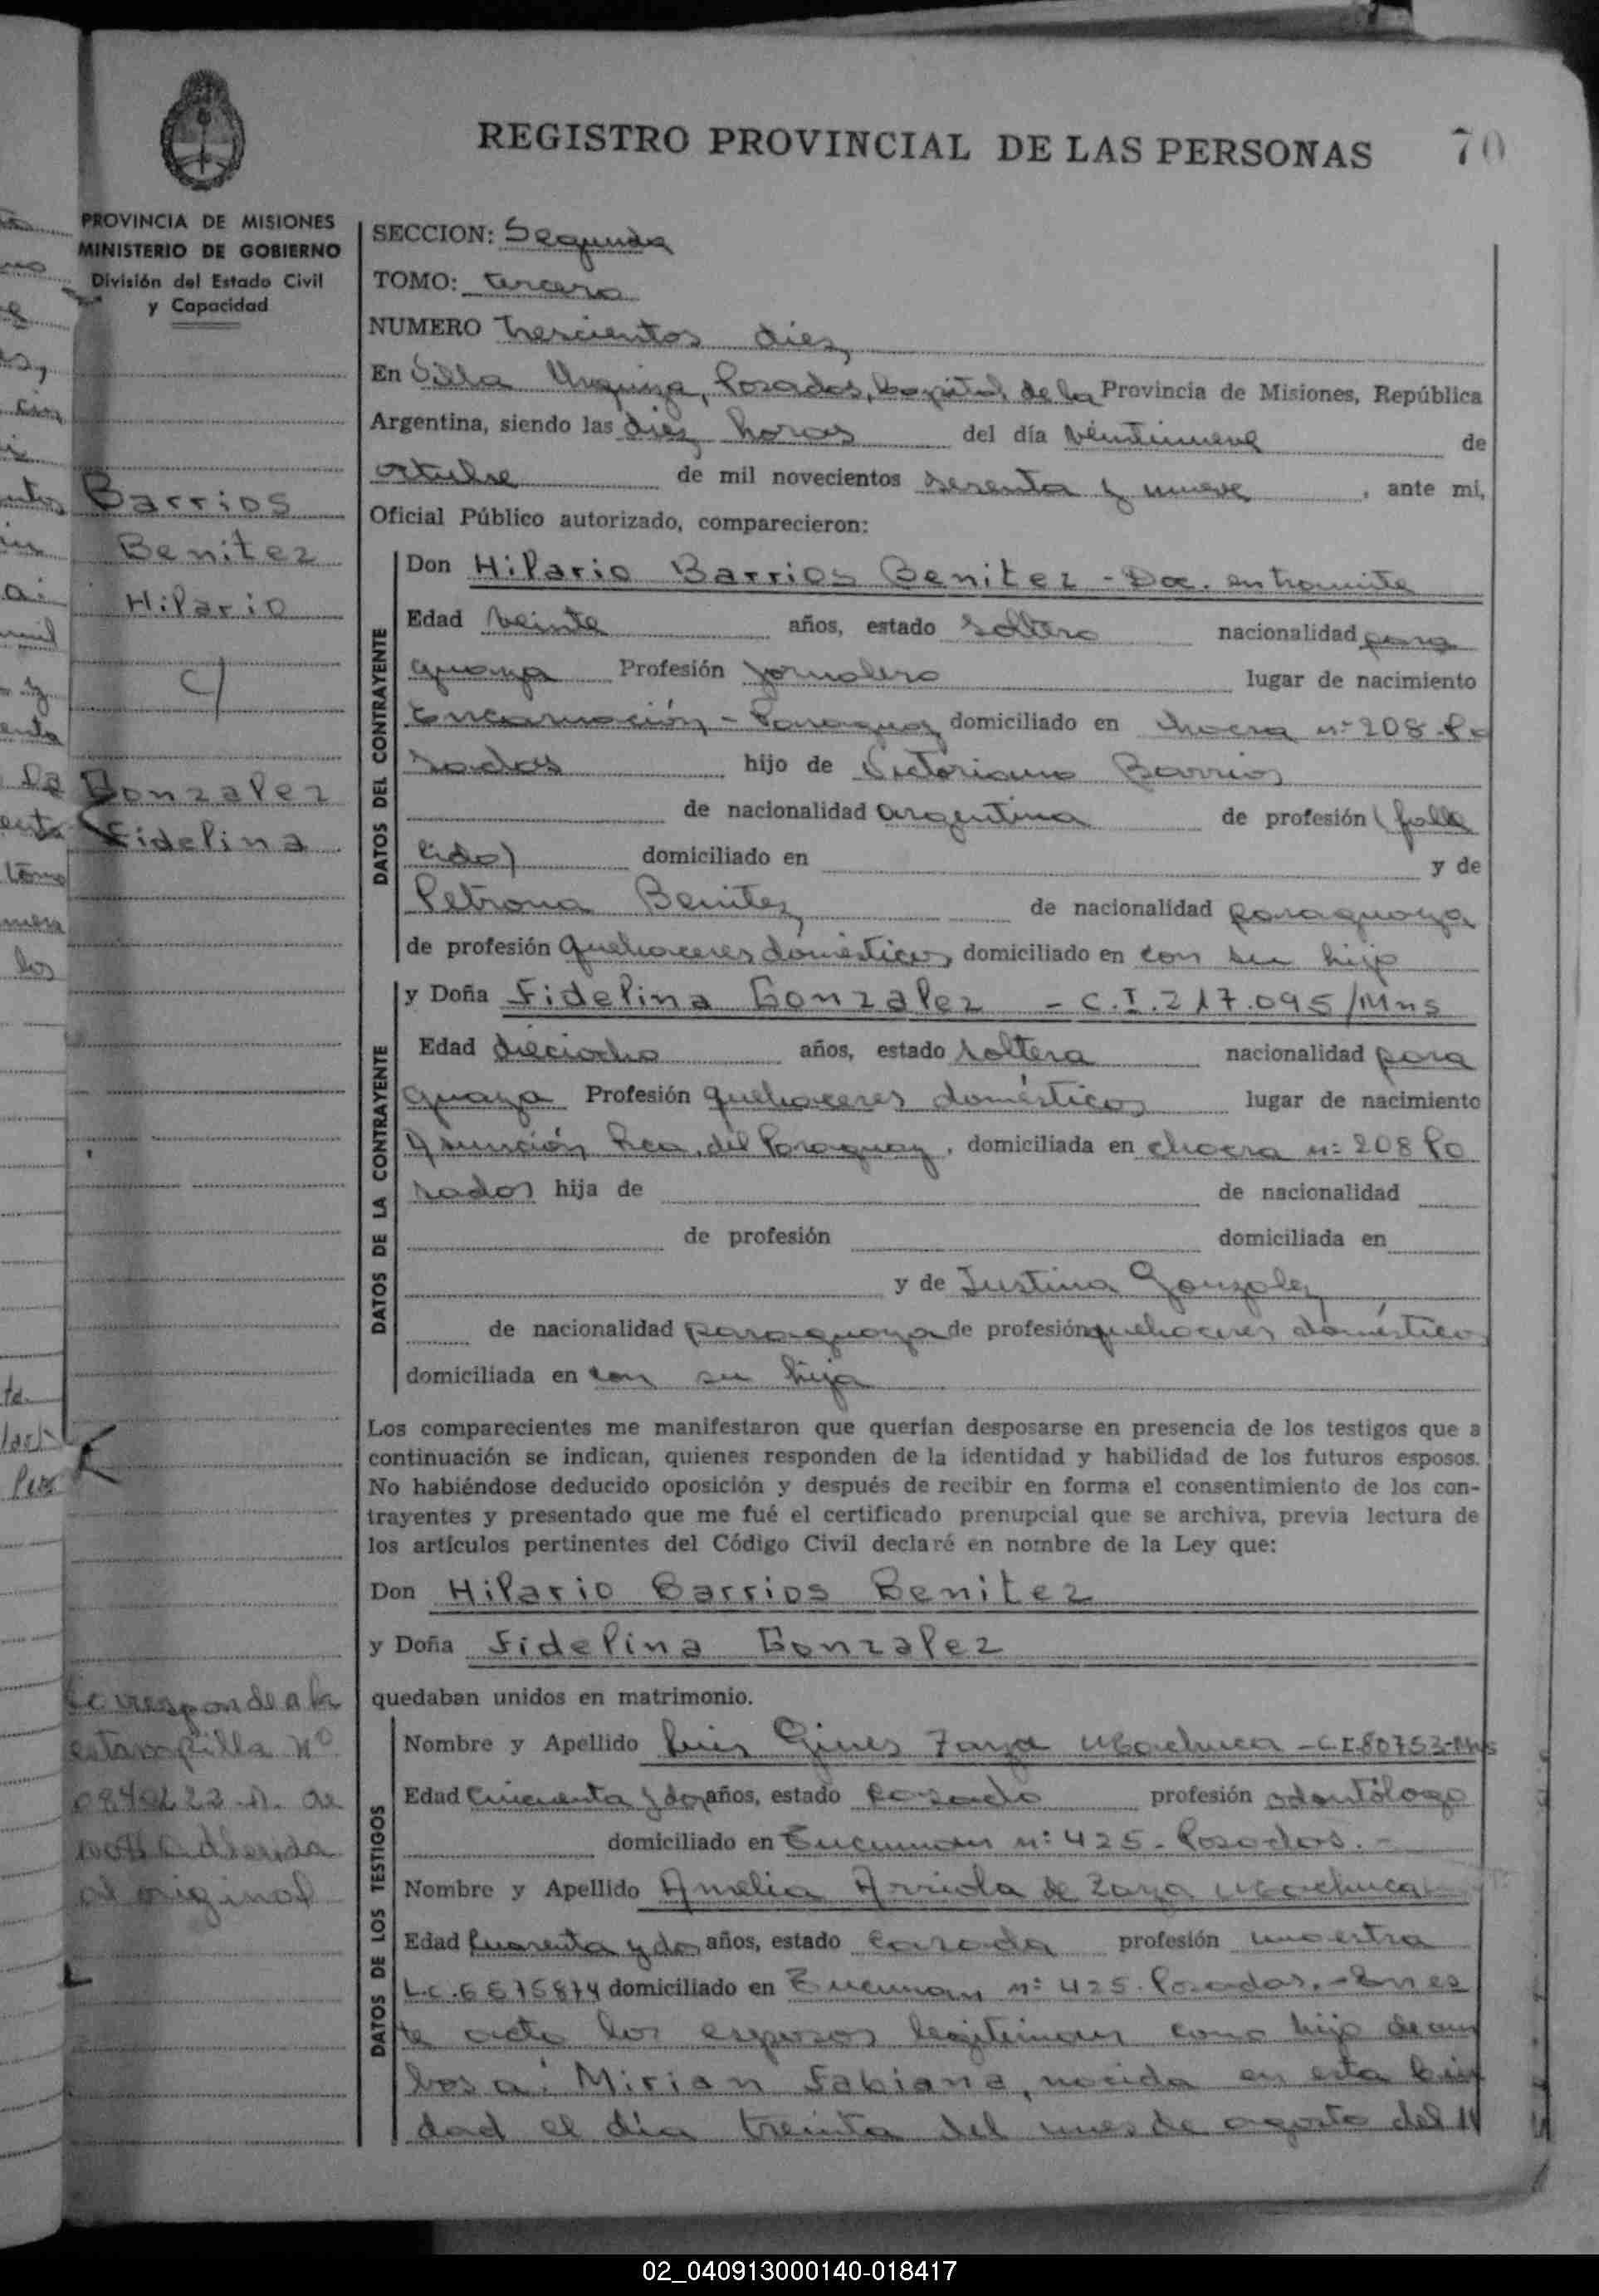 REGISTRO PROVINCIAL DE LAS PERSONAS 70
PROVINCIA DE MISIONES
MINISTERIO DE GOBIERNO
División del Estado Civil
y Capacidad
Barrios
Benitez
Hilario
c/
Gonzalez
Fidelina
Corresponde a la
estampilla Nº
adherida
al original
SECCION: Segunda
TOMO: tercero
NUMERO trescientos diez
En Villa Urquiza, Posadas, Capital de la Provincia de Misiones, República
Argentina, siendo las diez horas del día veintinueve de
octubre de mil novecientos sesenta y nueve, ante mí,
Oficial Público autorizado, comparecieron:
DATOS DEL CONTRAYENTE
Don Hilario Barrios Benitez - Doc. en tramite
Edad veinte años, estado soltero nacionalidad para
guaya Profesión jornalero lugar de nacimiento
Encarnación - Paraguay domiciliado en chacra nº 208 - Po
sadas hijo de Victoriano Barrios
de nacionalidad argentina de profesión (falle
cido) domiciliado en y de
Petrona Benitez de nacionalidad paraguaya
de profesión quehaceres domésticos domiciliado en con su hijo
DATOS DE LA CONTRAYENTE
y Doña Fidelina Gonzalez - C.I. 217.095/Mns
Edad dieciocho años, estado soltera nacionalidad para
guaya Profesión quehaceres domésticos lugar de nacimiento
Asunción Rca. del Paraguay, domiciliada en chacra nº 208 Po
sadas hija de de nacionalidad
de profesión domiciliada en
y de Justina Gonzalez
de nacionalidad paraguaya de profesión quehaceres domésticos
domiciliada en con su hija
Los comparecientes me manifestaron que querían desposarse en presencia de los testigos que a
continuación se indican, quienes responden de la identidad y habilidad de los futuros esposos.
No habiéndose deducido oposición y después de recibir en forma el consentimiento de los con-
trayentes y presentado que me fué el certificado prenupcial que se archiva, previa lectura de
los artículos pertinentes del Código Civil declaré en nombre de la Ley que:
Don Hilario Barrios Benitez
y Doña Fidelina Gonzalez
quedaban unidos en matrimonio.
DATOS DE LOS TESTIGOS
Nombre y Apellido Luis Gines Zaya Machuca - C.I.80753-Mns
Edad Cincuenta y dos años, estado casado profesión odontólogo
domiciliado en Tucuman nº 425 - Posadas. -
Nombre y Apellido Amelia Arriola de Zaya Machuca
Edad Cuarenta y dos años, estado casada profesión maestra
L.C. 6675874 domiciliado en Tucuman nº 425 - Posadas. - En es
te acto los esposos legitiman como hijo de am
bos a: Mirian Fabiana, nacida en esta Ciu
dad el día treinta del mes de agosto del
02_040913000140-018417